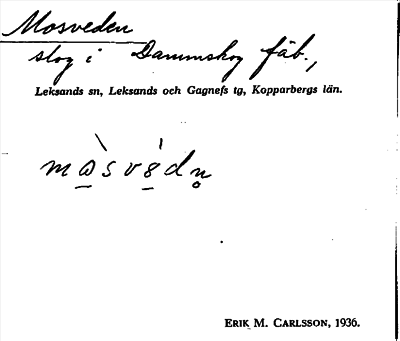 Mosveden
slog i Dammskog fäb.,
Leksands sn, Leksands och Gagnefs tg, Kopparbergs län.
ERIK M. CARLSSON, 1936.